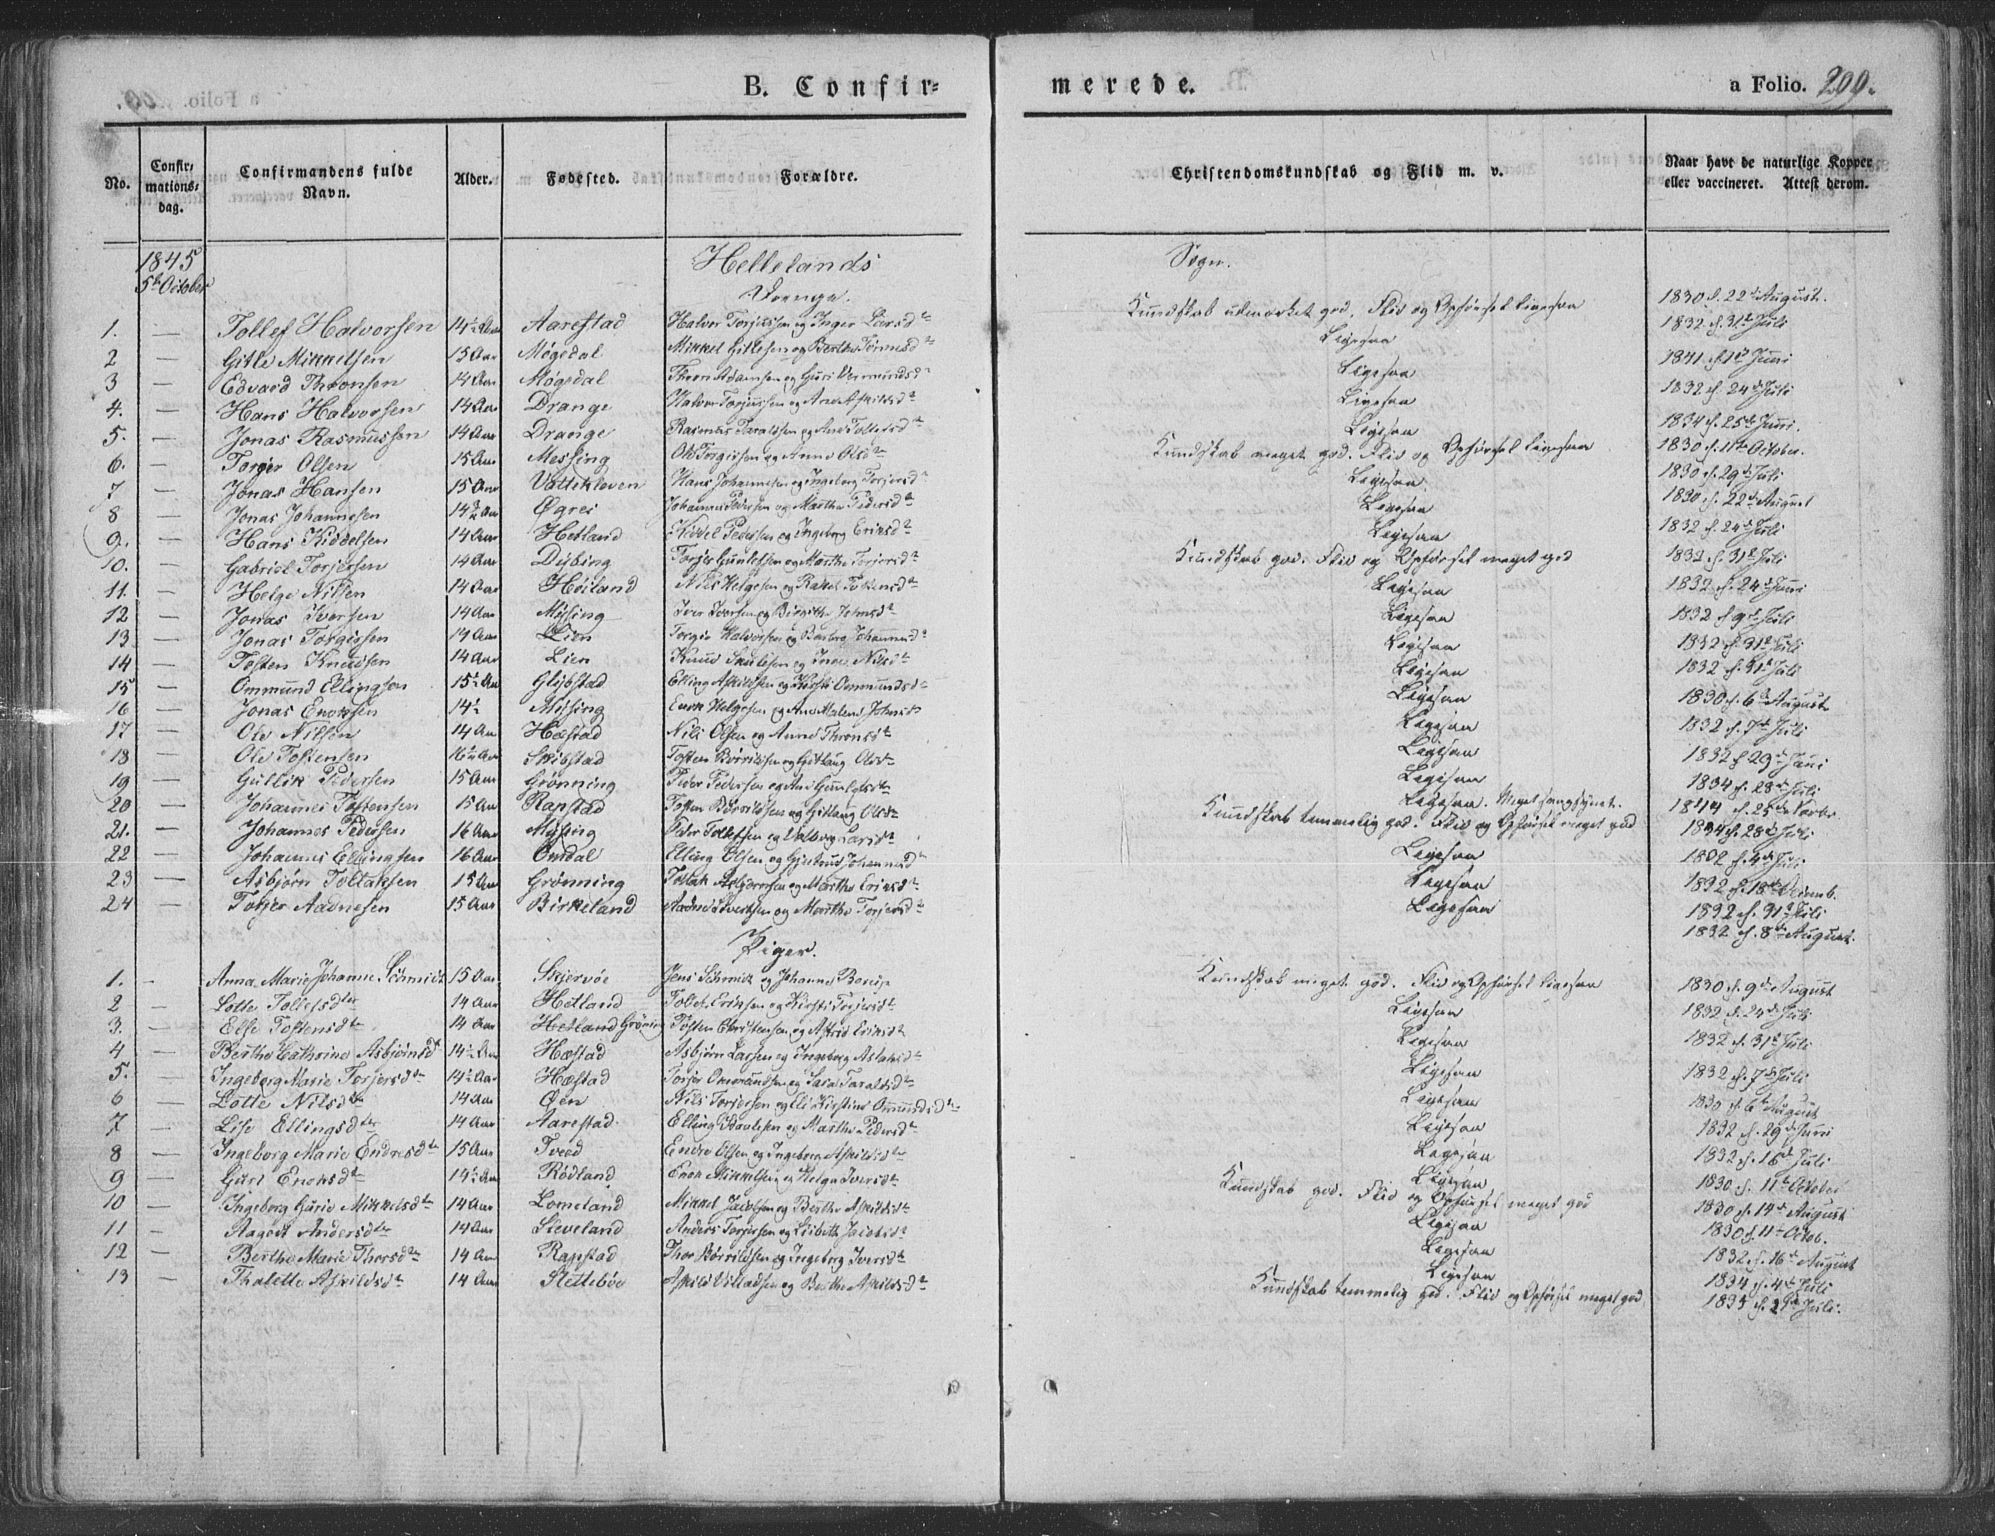 B. Confir=
merede.
a Folio. 299.
No.
Confir=
mations=
dag.
Confirmandens fulde
Navn.
Alder.
Fødested.
Forældre.
Christendomskundskab og Flid m. v.
Naar havt de naturlige Kopper
eller vaccineret. Attest derom.
1845
5te October
Hellelands Sogn.
Drenge.
1. — Tollef Halvorsen 14½ Aar Aarestad Halvor Torjussen og Inger Larsdtr Kundskab udmærket god. Flid og Opførsel ligesaa 1830 d. 22de August.
2 — Gitle Mikkelsen 15 Aar Møgedal Mikkel Gitlesen og Berthe Tønnesdtr Ligesaa 1832 d. 31te Juli
3 — Edvard Thronsen 14 Aar Møgedal Thron Adamsen og Guri Vermundsdtr Ligesaa 1841 d. 1te Juni
4. — Hans Halvorsen 14 Aar Drange Halvor Torjussen og Ane Askildsdtr Ligesaa 1832 d. 24de Juli
5. — Jonas Rasmussen 14 Aar Drange Rasmus Taraldsen og Ane Tollefsdtr Ligesaa 1834 d. 25de Juni.
6. — Torger Olsen 15 Aar Messing Ole Torgersen og Anne Olsdtr Kundskab meget god. Flid og Opførsel ligesaa 1830 d. 11te October.
7 — Jonas Hansen 15 Aar Vattekleven Hans Johannesen og Ingeborg Torjersdtr Ligesaa 1830 d. 29de Juli
8 — Jonas Johannesen 14¾ Aar Øgrei Johannes Pedersen og Marthe Pedersdtr Ligesaa 1830 d. 22de August
9. — Hans Kiddelsen 14 Aar Hetland Kiddel Pedersen og Ingeborg Eriksdtr Ligesaa 1832 d. 24de Juli
10. — Gabriel Torjersen 14 Aar Dybing Torjer Gunlefsen og Marthe Torjersdtr Kundskab god. Flid og Opførsel meget god 1832 d. 31te Juli
11. — Helge Nilsen 14 Aar Høiland Nils Helgesen og Rakel Tostensdtr Ligesaa 1832 d. 24de Juni
12 — Jonas Iversen 14 Aar Mysing Iver Iversen og Birgithe Johnsdtr Ligesaa 1832 d. 9de Juli
13 — Jonas Torgersen 14 Aar Lien Torger Halvorsen og Barbro Johannesdtr Ligesaa 1832 d. 31te Juli
14 — Tosten Knudsen 14 Aar Lien Knud Skulesen og Inger Nilsdtr Ligesaa 1832 d. 31te Juli
15 — Ommund Ellingsen 15½ Aar Glybstad Elling Askildsen og Kirsti Ommundsdtr Ligesaa 1830 d. 6te August
16 — Jonas Enoksen 14½ Mysing Enok Helgesen og Ane Malene Johnsdtr Ligesaa 1832 d. 7de Juli
17 — Ole Nilsen 14 Aar Hæstad Nils Olsen og Anne Thronsdtr Ligesaa 1832 d. 29de Juni
18 — Ole Tostensen 16½ Aar Skibstad Tosten Børrildsen og Gitlaug Olsdtr Ligesaa 1834 d. 28de Juli
19 — Gullik Pedersen 15 Aar Grønning Peder Pedersen og Ane Gunlefsdtr Ligesaa. Meget svagsynet. 1844 d. 25de Novbr
20 — Johannes Tostensen 15 Aar Rapstad Tosten Børrildsen og Gitlaug Olsdtr Kundskab temmelig god. Flid og Opførsel meget god 1834 d. 28de Juli
21. — Johannes Pedersen 16 Aar Mysing Peder Tollefsen og Valborg Larsdtr Ligesaa 1832 d. 4de Juli
22 — Johannes Ellingsen 16 Aar Omdal Elling Olsen og Gjertrud Johannesdtr Ligesaa 1832 d. 18de Decemb.
23 — Asbjørn Tollaksen 15 Aar Grønning Tollak Asbjørnsen og Marthe Eriksdtr Ligesaa 1832 d. 31te Juli
24 — Torjer Aadnesen 15 Aar Birkeland Aadne Sivertsen og Marthe Torjersdtr 1832 d. 8de August.
Piger.
1. — Anna Marie Johanne Schmidt 15 Aar Skjervøe Jens Schmidt og Johanne Borup Kundskab meget god. Flid og Opførsel ligesaa 1830 d. 9de August
2 — Lotte Tollefsdtr 14 Aar Hetland Tollef Eriksen og Kirsti Torjersdtr Ligesaa 1832 d. 24de Juli
3. — Else Tostensdtr 14 Aar Hetland Grøning Tosten Christensen og Astrid Eriksdtr Ligesaa 1832 d. 31te Juli
4 — Berthe Cathrine Asbjørnsdtr 14½ Aar Hæstad Asbjørn Larsen og Ingeborg Aslaksdtr Ligesaa 1832 d. 7de Juli
5. — Ingeborg Marie Torjersdtr 14½ Aar Hæstad Torjer Ommundsen og Sara Taraldsdtr Ligesaa 1830 d. 6te August
6 — Lotte Nilsdtr 14 Aar Øen Nils Torjersen og Eli Kirstine Ommundsdtr Ligesaa 1832 d. 29de Juni
7 — Lise Ellingsdtr 14 Aar Aarestad. Elling Paulesen og Marthe Pedersdtr Ligesaa 1832 d. 16de Juli
8 — Ingeborg Marie Endresdtr 15 Aar Tveed Endre Olsen og Ingeborg Askildsdtr Ligesaa 1830 d. 11te October
9 — Guri Enoksdtr 14½ Aar Rødland Enok Mikkelsen og Helga Iversdtr Kundskab god. Flid og Opførsel meget god 1830 d. 14de August
10 — Ingeborg Gurie Mikkelsdtr 14 Aar Lomeland Mikkel Jacobsen og Berthe Askildsdtr Ligesaa 1830 d. 11te Octob.
11 — Aagodt Andersdtr 14 Aar Sleveland Anders Torjersen og Lisbeth Jacobsdtr Ligesaa 1832 d. 16de August
12 — Berthe Marie Thorsdtr 14 Aar Rapstad Thor Børrildsen og Ingeborg Iversdtr Ligesaa 1834 d. 4de Juli
13 — Thalette Askildsdtr 14 Aar Slettebøe Askild Villadsen og Berthe Askildsdtr Kundskab temmelig god. Flid og Opførsel meget god 1833 d. 29de Juli.